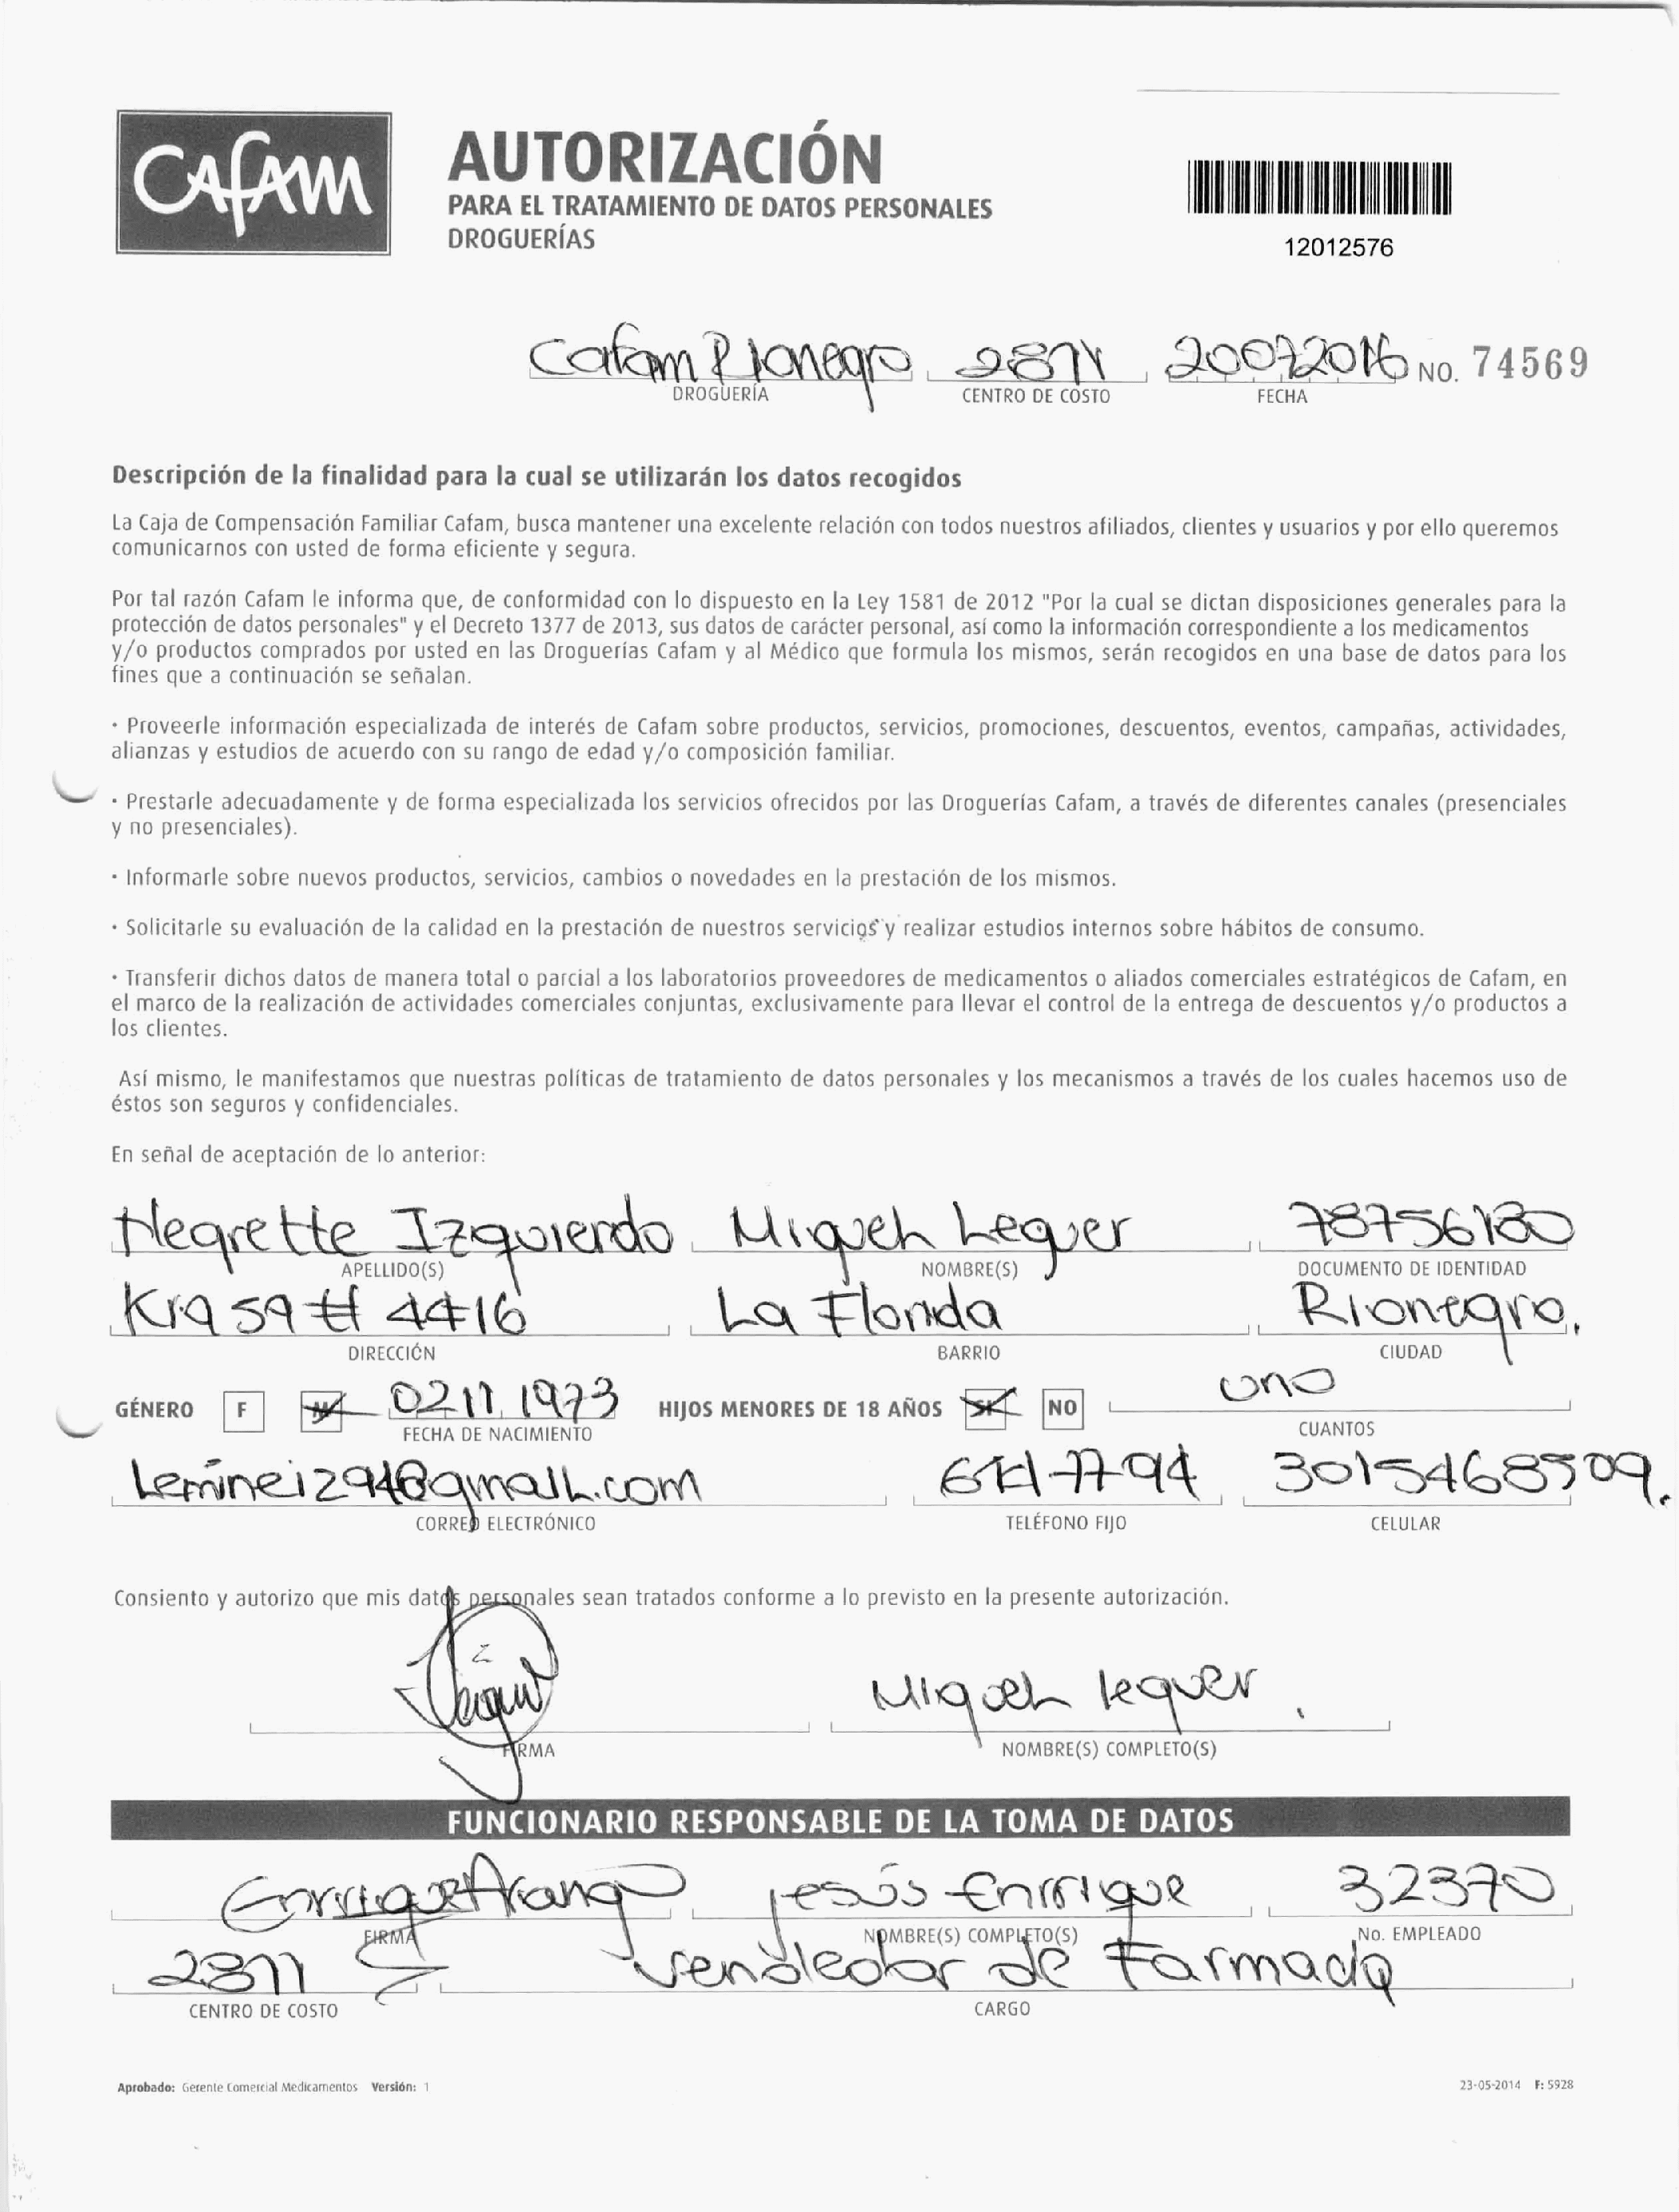 Cafam
AUTORIZACIÓN
PARA EL TRATAMIENTO DE DATOS PERSONALES
DROGUERÍAS
12012576
Cafam Rionegro 2871 20072016 NO. 74569
DROGUERÍA CENTRO DE COSTO FECHA
Descripción de la finalidad para la cual se utilizarán los datos recogidos
La Caja de Compensación Familiar Cafam, busca mantener una excelente relación con todos nuestros afiliados, clientes y usuarios y por ello queremos
comunicarnos con usted de forma eficiente y segura.
Por tal razón Cafam le informa que, de conformidad con lo dispuesto en la Ley 1581 de 2012 "Por la cual se dictan disposiciones generales para la
protección de datos personales" y el Decreto 1377 de 2013, sus datos de carácter personal, así como la información correspondiente a los medicamentos
y/o productos comprados por usted en las Droguerías Cafam y al Médico que formula los mismos, serán recogidos en una base de datos para los
fines que a continuación se señalan.
· Proveerle información especializada de interés de Cafam sobre productos, servicios, promociones, descuentos, eventos, campañas, actividades,
alianzas y estudios de acuerdo con su rango de edad y/o composición familiar.
· Prestarle adecuadamente y de forma especializada los servicios ofrecidos por las Droguerías Cafam, a través de diferentes canales (presenciales
y no presenciales).
· Informarle sobre nuevos productos, servicios, cambios o novedades en la prestación de los mismos.
· Solicitarle su evaluación de la calidad en la prestación de nuestros servicios y realizar estudios internos sobre hábitos de consumo.
· Transferir dichos datos de manera total o parcial a los laboratorios proveedores de medicamentos o aliados comerciales estratégicos de Cafam, en
el marco de la realización de actividades comerciales conjuntas, exclusivamente para llevar el control de la entrega de descuentos y/o productos a
los clientes.
Así mismo, le manifestamos que nuestras políticas de tratamiento de datos personales y los mecanismos a través de los cuales hacemos uso de
éstos son seguros y confidenciales.
En señal de aceptación de lo anterior:
Negrette Izquierdo Miguel Leguer 78756180
APELLIDO(S) NOMBRE(S) DOCUMENTO DE IDENTIDAD
Kra 59 # 4416 La Florida Rionegro.
DIRECCIÓN BARRIO CIUDAD
GÉNERO F M 02 11 1973 HIJOS MENORES DE 18 AÑOS SI NO uno
FECHA DE NACIMIENTO CUANTOS
7794 3015468509.
CORREO ELECTRÓNICO TELÉFONO FIJO CELULAR
Consiento y autorizo que mis datos personales sean tratados conforme a lo previsto en la presente autorización.
Miguel leguer.
FIRMA NOMBRE(S) COMPLETO(S)
FUNCIONARIO RESPONSABLE DE LA TOMA DE DATOS
Enrique Arango Jesús Enrique 32370
FIRMA NOMBRE(S) COMPLETO(S) No. EMPLEADO
2871 vendedor de Farmacia
CENTRO DE COSTO CARGO
Aprobado: Gerente Comercial Medicamentos Versión: 1 23-05-2014 F: 5928